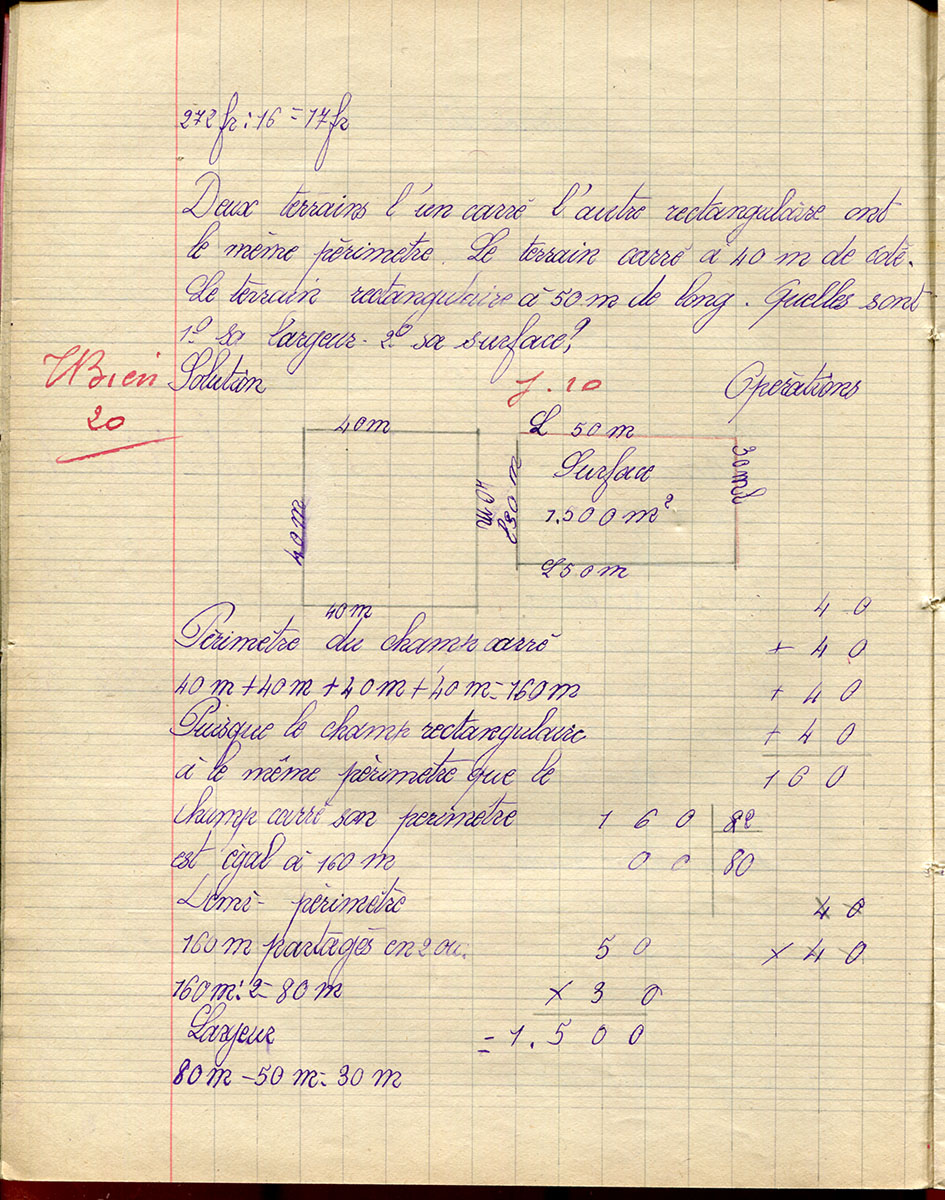 272 fr : 16 = 17 fr
Deux terrains l'un carré l'autre rectangulaire ont
le même périmètre. Le terrain carré à 40 m de côté.
Le terrain rectangulaire à 50 m de long. Quelles sont
1º sa largeur - 2º sa surface?
TBien
20
Solution
J. 10
Opérations
40m
40m
40m
40m
L 50 m
l 30 m
Surface
1.500 m²
30m l
L 50 m
Périmètre du champ carré
40 m + 40 m + 40 m + 40 m = 160 m
Puisque le champ rectangulaire
à le même périmètre que le
champ carré son perimètre
est égal à 160 m
Demi - périmètre
160 m partagés en 2 ou.
160 m : 2 = 80 m
Largeur
80 m - 50 m = 30 m
40
+ 40
+ 40
+ 40
160
160 2
00 80
50
× 30
= 1.500
40
× 40